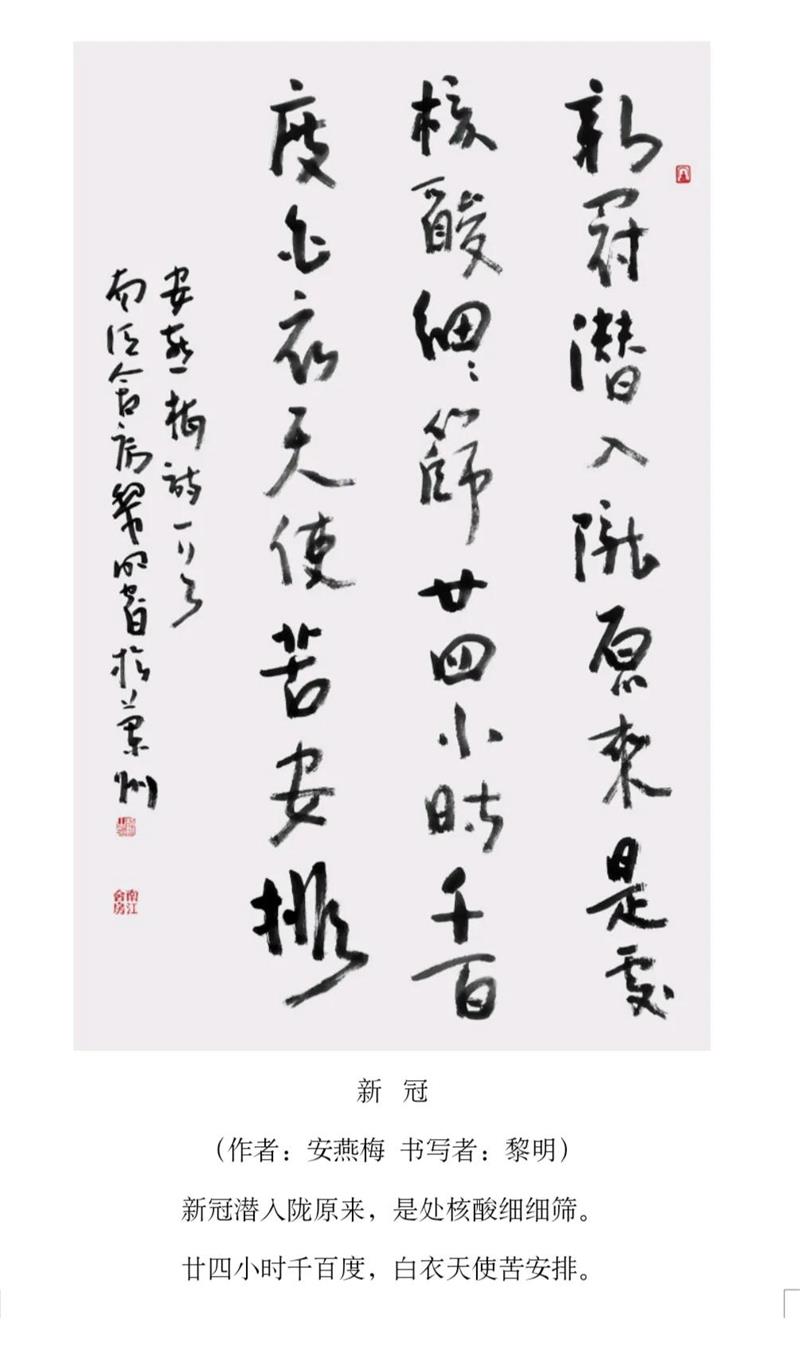 新冠潜入陇原来是处
核酸细〻筛廿四小时千百
度白衣天使苦安排
安燕梅诗一首
南江舍房黎明书于兰州
南江
舍房
新 冠
（作者：安燕梅 书写者：黎明）
新冠潜入陇原来，是处核酸细细筛。
廿四小时千百度，白衣天使苦安排。